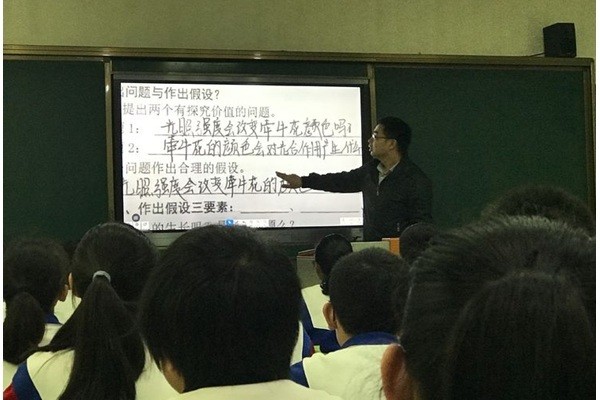 出问题与作出假设？
提出两个有探究价值的问题。
1：光照强度会改变牵牛花颜色吗？
2：牵牛花的颜色会对光合作用产生什么
问题作出合理的假设。
光照强度会改变牵牛花的颜色
、作出假设三要素：、、
的生长明